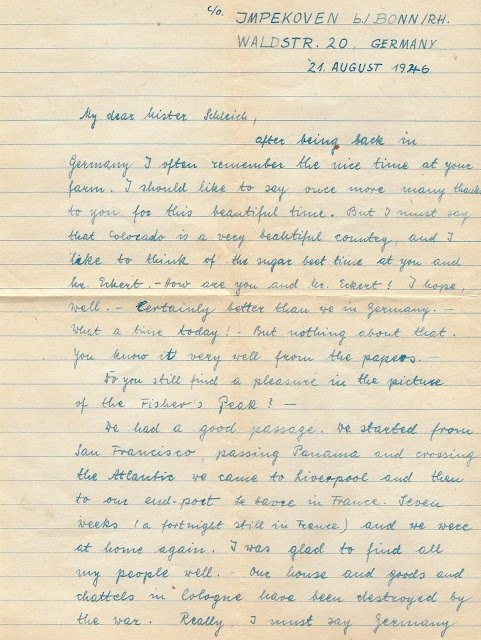 c/o. IMPEKOVEN b./BONN/RH.
WALDSTR. 20, GERMANY
21. AUGUST 1946
My dear Mister Schleich,
after being back in
Germany I often remember the nice time at your
farm. I should like to say once more many thanks
to you for this beautiful time. But I must say
that Colorado is a very beautiful country, and I
like to think of the sugar beet time at you and
Mr. Eckert. – How are you and Mr. Eckert? I hope,
well. – Certainly better than we in Germany. –
What a time today! – But nothing about that.
You know it very well from the papers. –
Do you still find a pleasure in the picture
of the Fisher's Peak? –
We had a good passage. We started from
San Francisco, passing Panama and crossing
the Atlantic we came to Liverpool and then
to our end-port Le Havre in France. Seven
weeks (a fortnight still in France) and we were
at home again. I was glad to find all
my people well. – Our house and goods and
chattels in Cologne have been destroyed by
the war. Really, I must say Germany